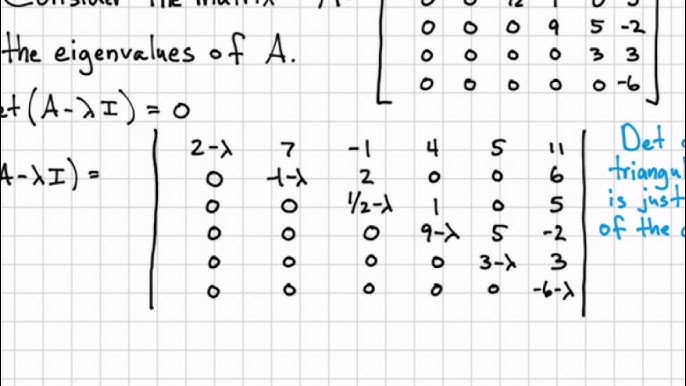 Consider the matrix A
0 0 1/2 1 0 5
0 0 0 9 5 -2
the eigenvalues of A.
0 0 0 0 3 3
0 0 0 0 0 -6
et(A-λI) = 0
A-λI) =
2-λ 7 -1 4 5 11
0 -1-λ 2 0 0 6
0 0 1/2-λ 1 0 5
0 0 0 9-λ 5 -2
0 0 0 0 3-λ 3
0 0 0 0 0 -6-λ
Det
triangul
is just
of the